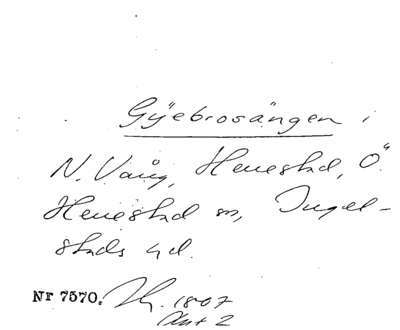 Gÿebrosängen i
N. Vång, Henestad, Ö.
Henestad sn, Ingel-
stads hd.
Nr 7570. 1807
Akt 2